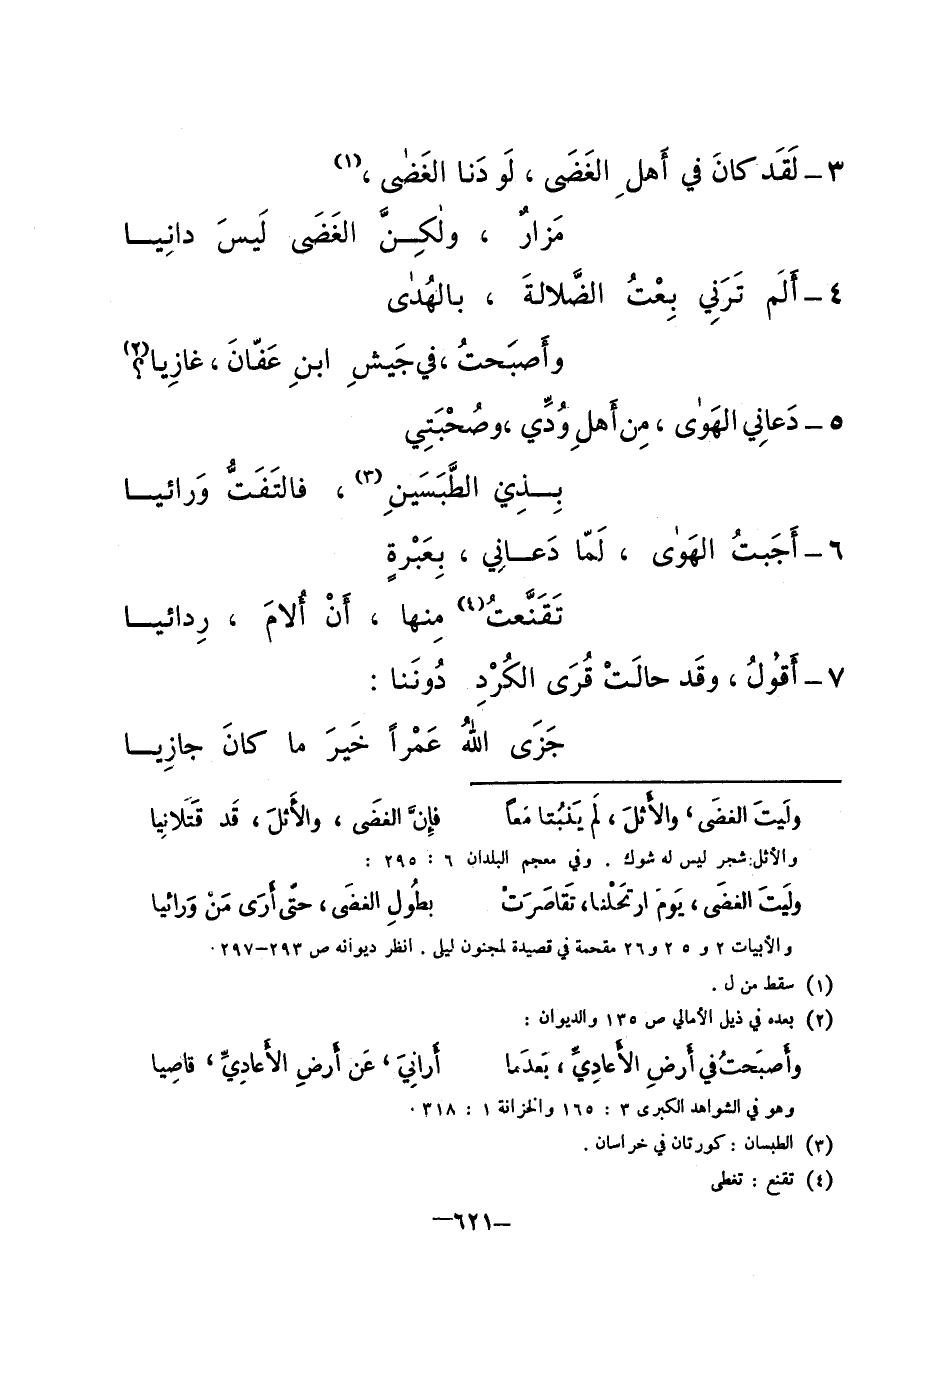 ٣ – لَقَد كانَ في أَهلِ الغَضَى ، لَو دَنا الغَضٰى ،(١)
مَزارٌ ، ولٰكِـنَّ الغَضَى لَيسَ دانِيـا
٤ – أَلَم تَرَنِي بِعْتُ الضَّلالةَ ، بالهُدٰى
وأَصبَحتُ ،في جَيشِ ابنِ عَفّانَ ، غازِيا؟(٢)
٥ – دَعانِي الهَوٰى ، مِن أَهلِ وُدِّي ،وصُحْبَتِي
بِـذِي الطَّبَسَينِ(٣) ، فالتَفَتُّ وَرائيـا
٦ – أَجَبتُ الهَوٰى ، لَمّا دَعـانِي ، بِعَبْرةٍ
تَقَنَّعتُ(٤) مِنها ، أَنْ أُلامَ ، رِدائيـا
٧ – أَقولُ ، وقَد حالَتْ قُرَى الكُرْدِ دُونَنا :
جَزَى اللهُ عَمْراً خَيرَ ما كانَ جازِيـا
ولَيتَ الغضَى ، والأَثلَ ، لَم يَنبُتا مَعاً فإِنَّ الغضَى ، والأَثلَ ، قَد قَتَلانِيا
والأثل: شجر ليس له شوك . وفي معجم البلدان ٦ : ٢٩٥ :
ولَيتَ الغضَى ، يَومَ ارتَحَلْنا، تَقاصَرَتْ بطُولِ الغضَى ، حتّى أَرَى مَنْ وَرائيا
والأبيات ٢ و ٢٥ و٢٦ مقحمة في قصيدة لمجنون ليلى . انظر ديوانه ص ٢٩٣–٢٩٧٠
(١) سقط من ل .
(٢) بعده في ذيل الأمالي ص ١٣٥ والديوان :
وأَصبَحتُ في أَرضِ الأَعادِيِّ ، بَعدَما أَرانِيَ ، عَن أَرضِ الأَعادِيِّ ، قاصِيا
وهو في الشواهد الكبرى ٣ : ١٦٥ والخزانة ١ : ٣١٨ ٠
(٣) الطبسان : كورتان في خراسان .
(٤) تقنع : تغطى
–٦٢١–